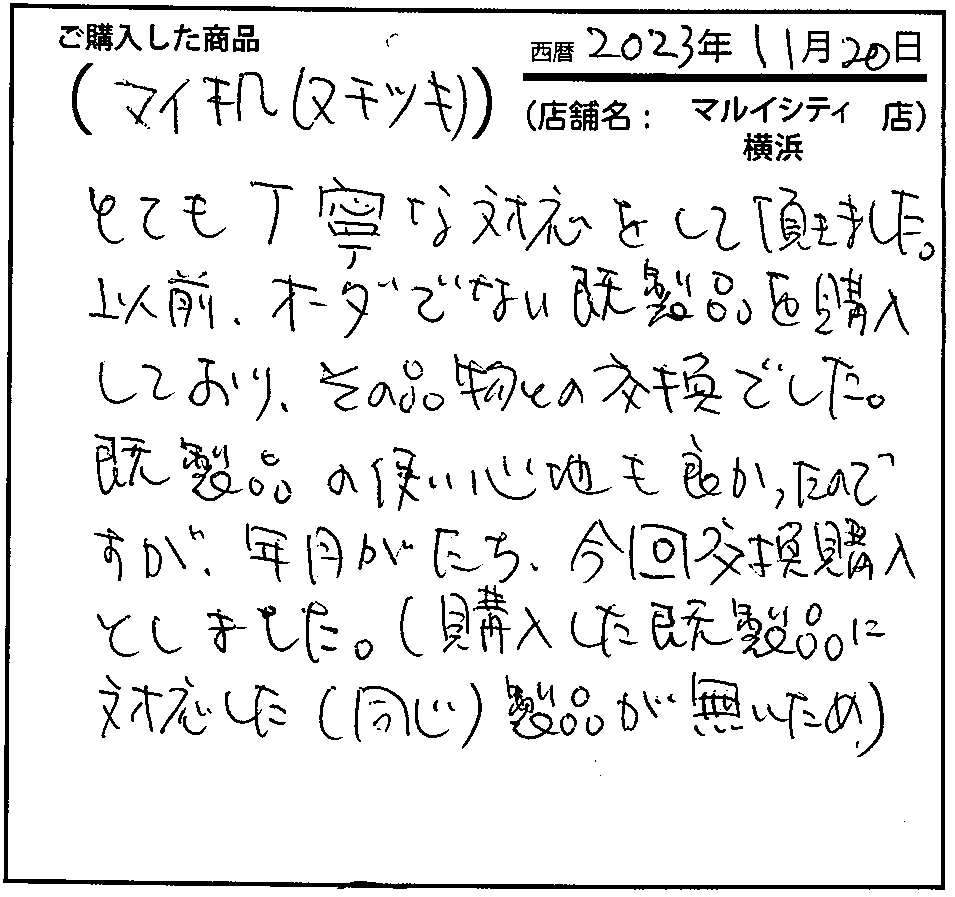 ご購入した商品
西暦 2023年 11月20日
(マイ机())
(店舗名: マルイシティ横浜 店)
とても丁寧な対応をして頂きました。
以前、オーダでない既製品を購入
しており、その品物との交換でした。
既製品の使い心地も良かったので
すが、年月がたち、今回交換購入
としました。(購入した既製品に
対応した(同じ)製品が無いため)